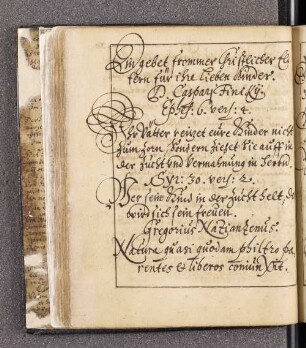 Ein gebet frommer Christlicher El
tern für ihre lieben Kinder.
D. Caspari Finckÿ.
Ephes: 6. vers: 4.
Ihr Vätter reitzet eure Kinder nicht
zum zorn, sondern ziehet sie auff in
der zucht und vermahnung im Herrn.
Syr: 30. vers: 2.
Wer sein Kind in der zucht helt, der
wird sich sein freuen.
Gregorius Nazianzenus:
Natura quasi quodam philtro pa
rentes et liberos coniunxit.